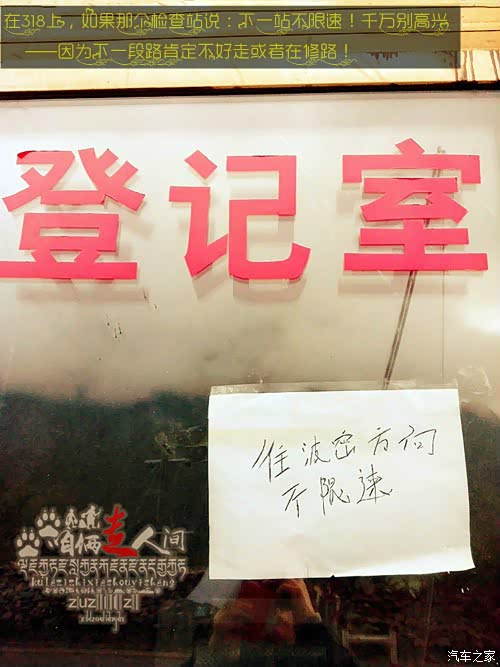 在318上，如果那个检查站说：下一站不限速！千万别高兴
——因为下一段路肯定不好走或者在修路！
登记室
往波密方向
不限速
走人间
汽车之家